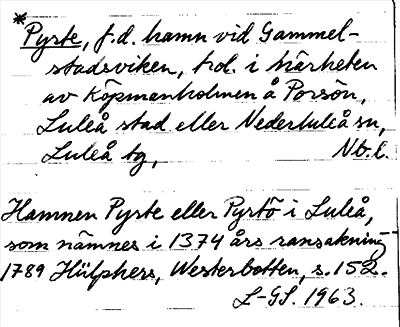 *
Pyrte, f.d. hamn vid Gammel-
stadsviken, trol. i närheten
av Köpmanholmen å Porsön,
Luleå stad eller Nederluleå sn,
Luleå tg, Nb.l.
Hamnen Pyrte eller Pyrtö i Luleå,
som nämnes i 1374 års ransakning
1789 Hülphers, Westerbotten, s. 152.
L-GS. 1963.